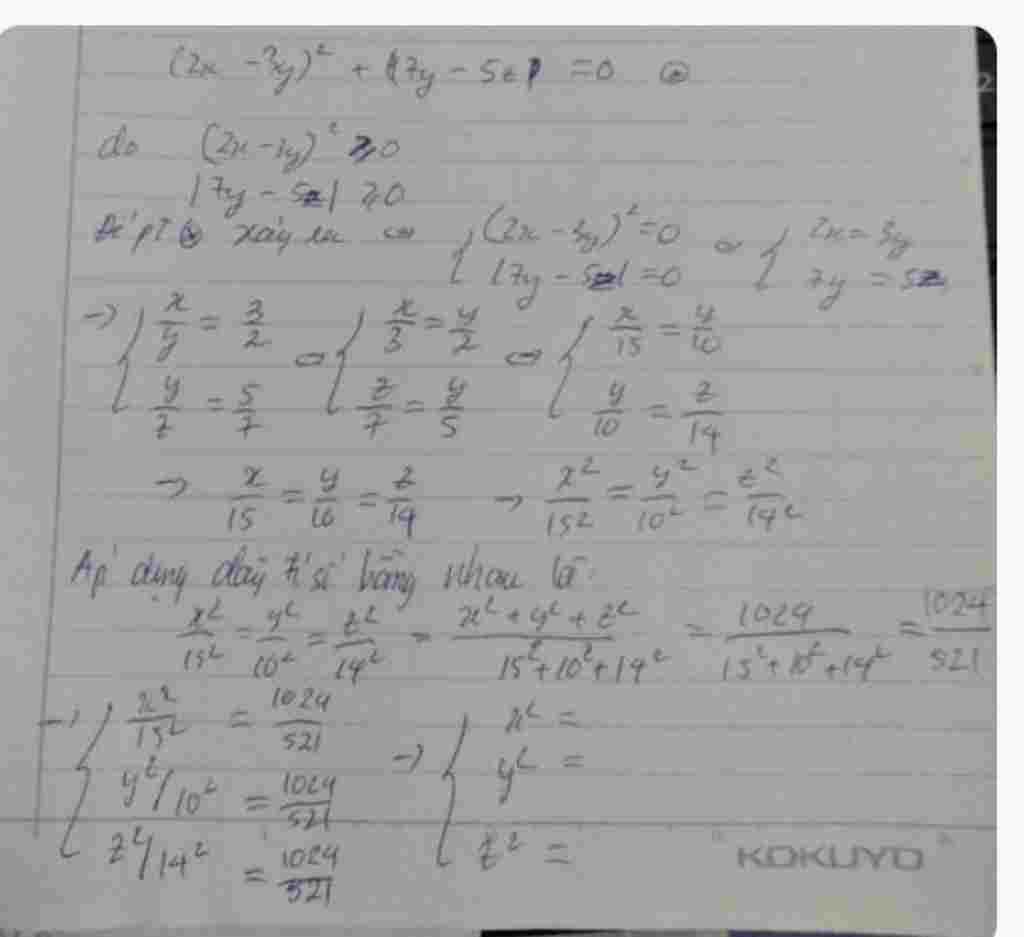 (2x - 3y)² + |7y - 5z| = 0 ⊛
do (2x - 3y)² ≥ 0
|7y - 5z| ≥ 0
Để pt ⊛ xảy ra ⇔ { (2x - 3y)² = 0 ⇔ { 2x = 3y
|7y - 5z| = 0 7y = 5z
→ { x/y = 3/2 ⇔ { x/3 = y/2 ⇔ { x/15 = y/10
y/z = 5/7 z/7 = y/5 y/10 = z/14
→ x/15 = y/10 = z/14 → x²/15² = y²/10² = z²/14²
Áp dụng dãy tỉ số bằng nhau là:
x²/15² = y²/10² = z²/14² = (x² + y² + z²)/(15² + 10² + 14²) = 1024/(15² + 10² + 14²) = 1024/521
→ { x²/15² = 1024/521 → { x² =
y²/10² = 1024/521 y² =
z²/14² = 1024/521 z² =
KOKUYO